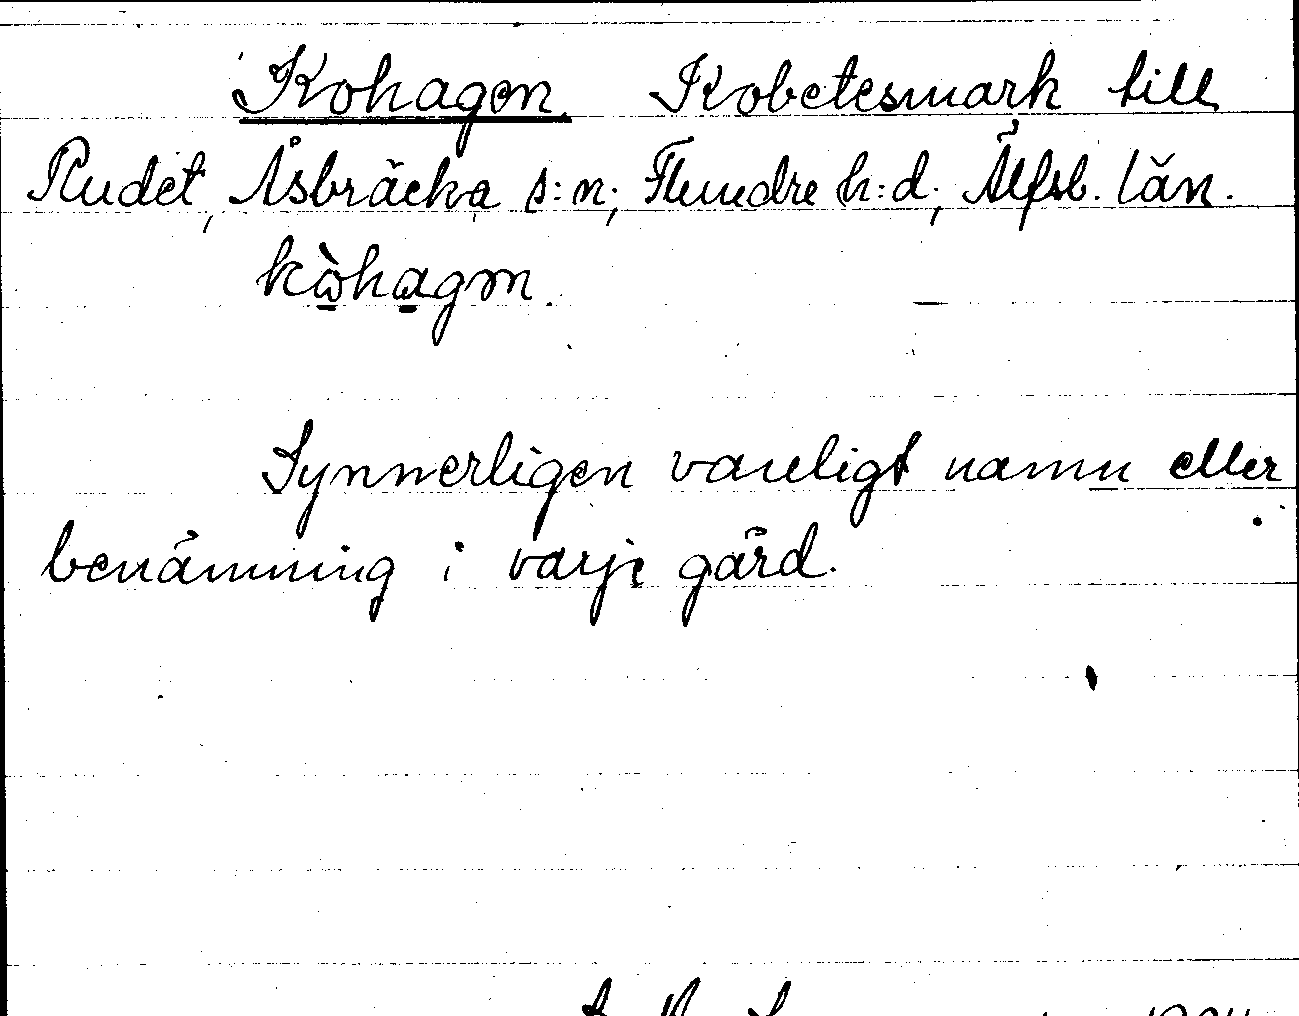 Kohagen. Kobetesmark till
Rudet, Åsbräcka s:n; Flundre h:d; Älfsb. län.
kòhagm.
Synnerligen vanligt namn eller
benämning i varje gård.